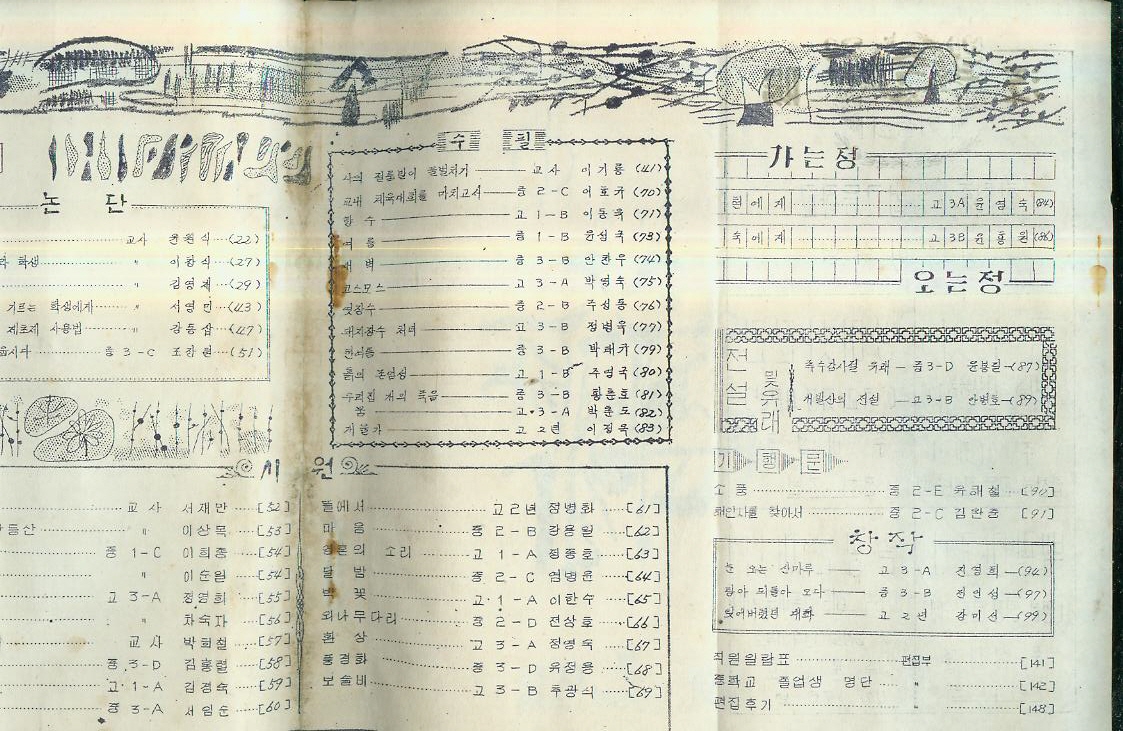 논 단
교사 윤원식 (22)
학생 이황식 (27)
〃 김영제 (29)
기르는 학생에게 〃 서영민 (43)
제초제 사용법 〃 강동삼 (47)
중 3-C 조강원 (51)
수 필
교사 이기룡 (41)
교내 체육대회를 마치고서 중 2-C 이호규 (70)
향수 고 1-B 이동욱 (71)
여름 중 1-B 윤성국 (73)
새벽 중 3-B 안찬우 (74)
코스모스 고 3-A 박영숙 (75)
엿장수 중 2-B 주성동 (76)
돼지장수 처녀 고 3-B 정병욱 (77)
중 3-B 박래가 (79)
흙의 존엄성 고 1-B 주영국 (80)
우리집 개의 죽음 중 3-B 황춘호 (81)
봄 고 3-A 박춘도 (82)
겨울가 고 2년 이정욱 (83)
시 원
교사 서재만 [52]
들산 〃 이상목 [53]
중 1-C 이희종 [54]
〃 이순월 [54]
고 3-A 정영희 [55]
〃 차숙자 [56]
교사 박희철 [57]
중 3-D 김홍렵 [58]
고 1-A 김경숙 [59]
중 3-A 서임순 [60]
뜰에서 고2년 정병화 [61]
마음 중 2-B 강용월 [62]
황혼의 소리 고 1-A 정종호 [63]
달밤 중 2-C 염병윤 [64]
벽꽃 고 1-A 이한수 [65]
외나무다리 중 2-D 전상호 [66]
환상 고 3-A 정영숙 [67]
풍경화 중 3-D 유정용 [68]
보슬비 고 3-B 추광식 [69]
가는정
현에게 고 3A 윤영숙 (84)
숙에게 고 3B 윤용원 (86)
오는정
전설 및 유래
중3-D 윤봉길 (87)
전설 고3-B 안병호 (89)
기행문
소풍 중 2-E 유해철 [90]
해인사를 찾아서 중 2-C 김완중 [91]
창작
눈 오는 산마루 고 3-A 진영희 (94)
중 3-B 정인섭 (97)
잊어버렸던 대화 고 2년 강미선 (99)
직원일람표 편집부 [141]
중학교 졸업생 명단 〃 [142]
편집후기 〃 [148]